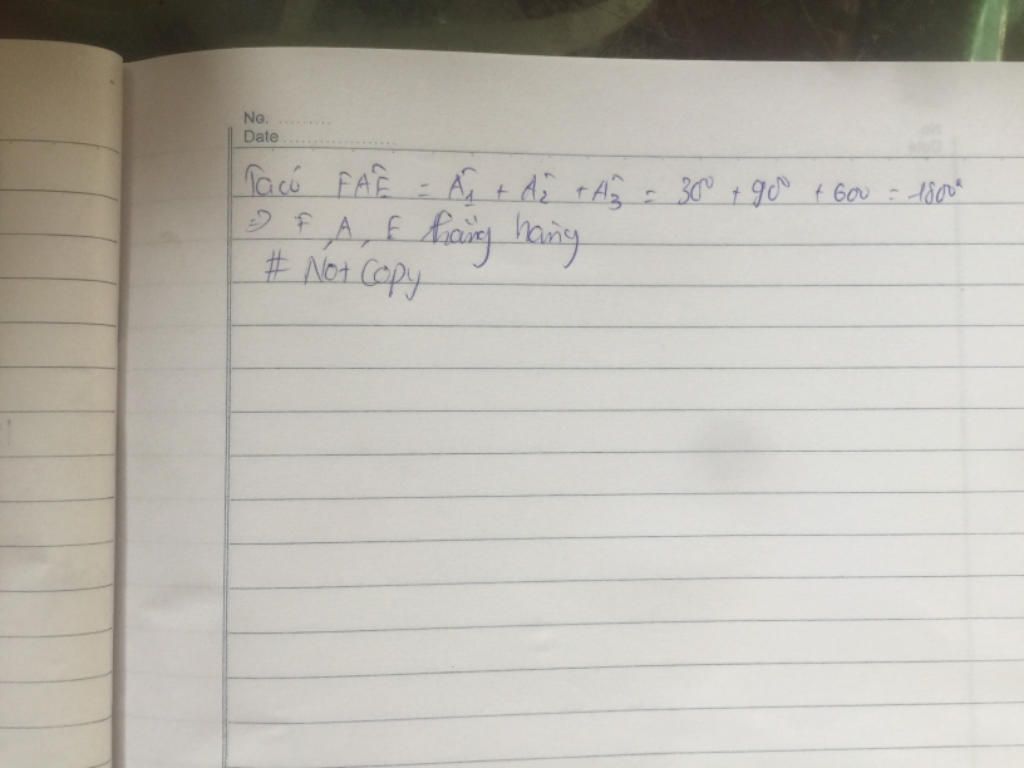 No. .........
Date ....................
Ta có FÂE = Â1 + Â2 + Â3 = 30° + 90° + 60° = 180°
=> F, A, E thẳng hàng
# Not Copy